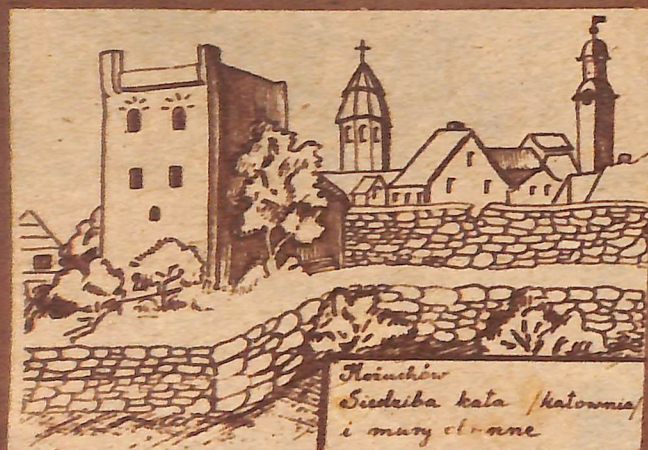 Kożuchów
Siedziba kata /katownia/
i mury obronne